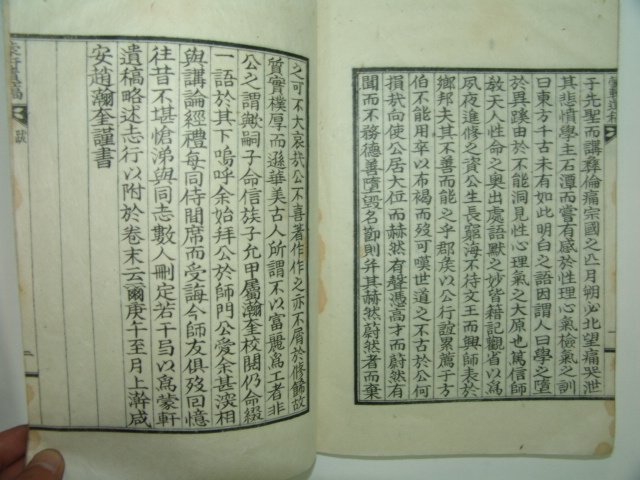 于先聖而講彝倫痛宗國之亡月朔必北望痛哭泄
其悲憤學主石潭而嘗有感於性理心氣檢氣之訓
曰東方千古未有如此明白之語因謂人曰學之墮
於異蹊由於不能洞見性心理氣之大原也篤信師
敎天人性命之奧出處語默之妙皆籍記觀省以爲
夙夜進修之資公生長窮海不待文王而興師表於
鄕邦夫其不善而能之乎郡矦以公行誼累薦于方
伯不能用卒以布褐而歿可嘆世道之不古於公何
損哉向使公居大位而赫然有聲憑高才而蔚然有
聞而不務德善墮毁名節則幷其赫然蔚然者而棄
之可不大哀哉公不喜著作作之亦不屑於修餙故
質實樸厚而遜華美古人所謂不以富麗爲工者非
公之謂歟嗣子命信族子允甲屬瀚奎校閱仍命綴
一語於其下嗚呼余始拜公於師門公愛余甚深相
與講論經禮每同侍間席而受誨今師友俱歿回憶
往昔不堪愴涕與同志數人刪定若干㢧以爲蒙軒
遺稿略述志行以附於卷末云爾庚午至月上澣咸
安趙瀚奎謹書